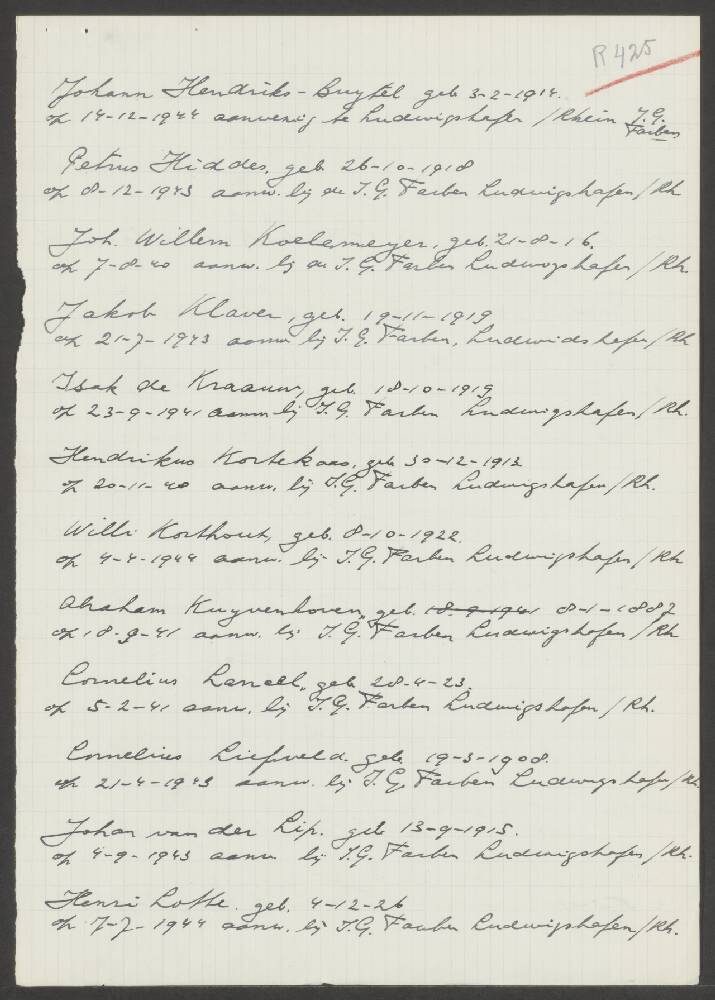 R 425
Johann Hendriks-Buytel geb 3-2-1914.
op 14-12-1944 aanwezig te Ludwigshafen / Rhein I.G. Farben
Petrus Hiddes, geb 26-10-1918
op 8-12-1943 aanw. bij de I.G. Farben Ludwigshafen / Rh
Joh. Willem Koelemeyer, geb. 21-8-16.
op 7-8-40 aanw. bij de I.G. Farben Ludwigshafen / Rh.
Jakob Klaver, geb. 19-11-1919
op 21-7-1943 aanw bij I.G. Farben, Ludwidshafen / Rh
Isak de Kraauw, geb. 18-10-1919
op 23-9-1941 aanw bij I.G. Farben Ludwigshafen / Rh.
Hendrikus Kortekaas, geb 30-12-1912
op 20-11-40 aanw. bij I.G. Farben Ludwigshafen / Rh.
Willi Korthout, geb. 8-10-1922.
op 4-4-1944 aanw. bij I.G. Farben Ludwigshafen / Rh
Abraham Kuyvenhoven, geb. 18-9-1941 8-1-1887
op 18-9-41 aanw. bij I.G. Farben Ludwigshafen / Rh
Cornelius geb 28-4-23.
op 5-2-41 aanw. bij I.G. Farben Ludwigshafen / Rh.
Cornelius Liefveld. geb. 19-3-1908.
op 21-4-1943 aanw. bij I.G. Farben Ludwigshafen / Rh
Johan van der Lip. geb 13-9-1915.
op 4-9-1943 aanw bij I.G. Farben Ludwigshafen / Rh.
Henri Lotte. geb. 4-12-26
op 7-7-1944 aanw. bij I.G. Farben Ludwigshafen / Rh.